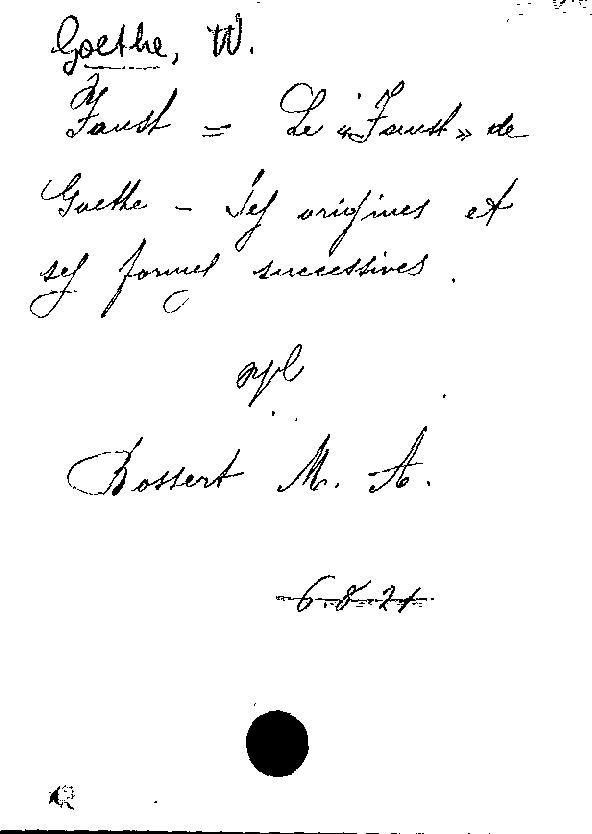 Goethe, W.
Faust = Le «Faust» de
Goethe - Ses origines et
ses formes successives.
Bossert M. A.
6.8.21